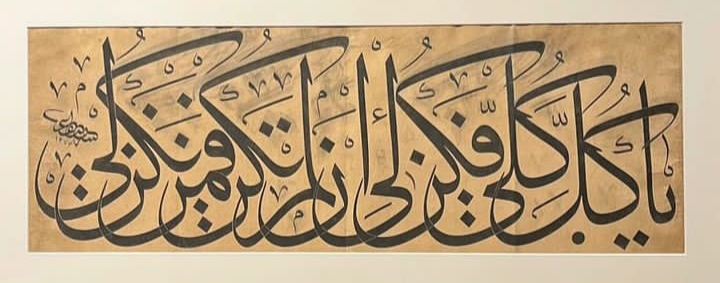 يا كل كلي فكن لي إن لم تكن فمن يكن لي